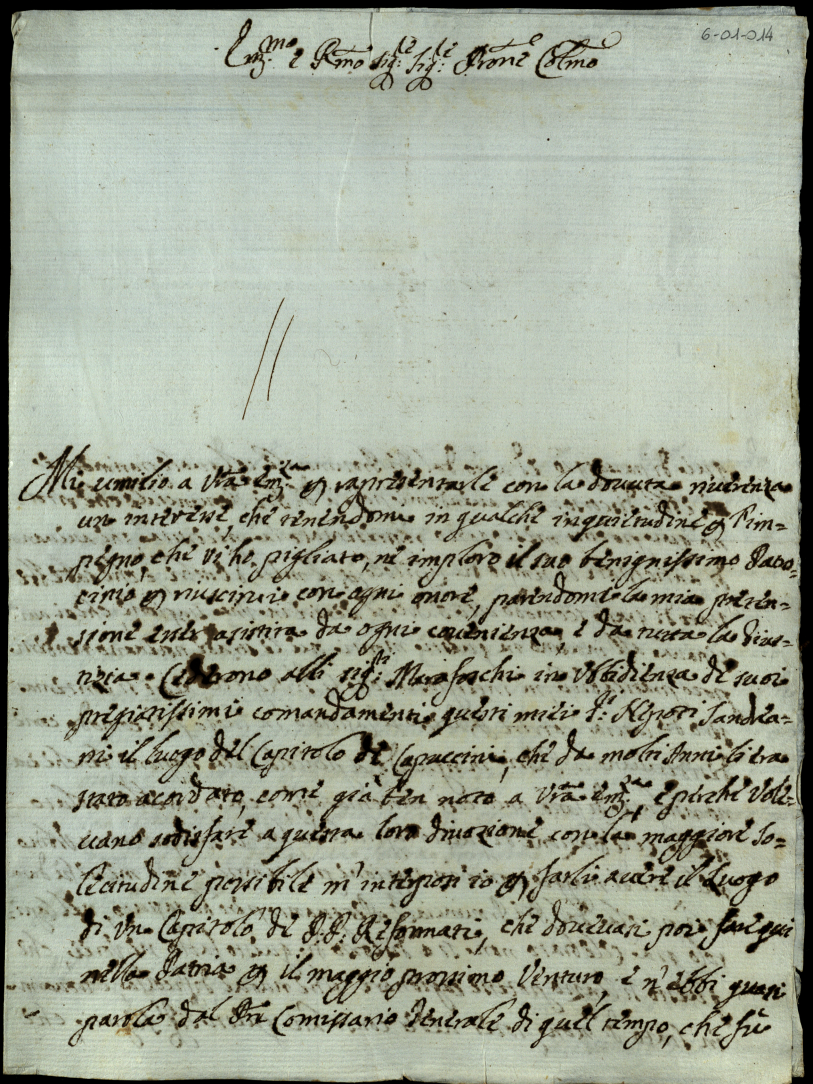 6-01-014
Em.mo e R.mo Sig.re Sig.re Prone Colmo
Mi umilio a Vra Em.za per rapresentarle con la dovuta riverenza
un interesse, che tenendomi in qualche inquietudine per l'im=
pegno, che vi ho pigliato, ne imploro il suo benignissimo Patro=
cinio per riuscirvi con ogni onore, parendomi la mia preten=
sione esser assistita da ogni convenienza, e da tutta la
Cederono alli Sig.ri Marefoschi in Ubbidienza de suoi
pregiatissimi comandamenti questi miei Nepoti
ni il luogo del Capitolo de Capuccini, che da molti Anni li era
stato acordato, come già ben noto a Vra Em.za, e perche vole=
vano sodisfare a questa loro divozione con la maggiore So=
lecitudine possibile m'interposi io per farli avere il Luogo
di un Capitolo de P.P. Reformati, che dovevasi poi fare qui
nella Patria per il maggio prossimo Venturo, e n'ebbi quasi
parola dal Pre Comissario Generale di quel tempo, che fù